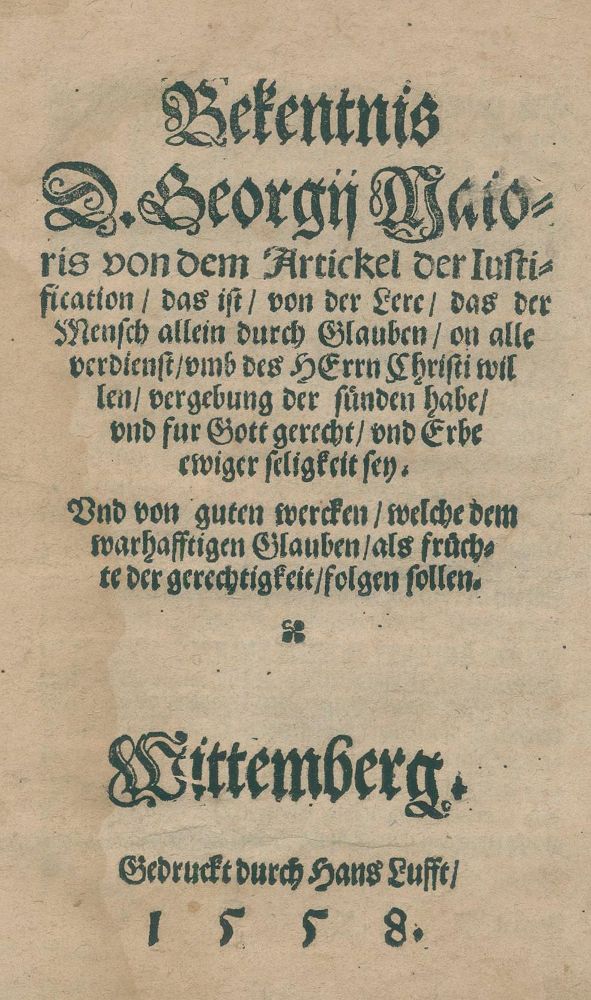 Bekentnis
D. Georgij Maio-
ris von dem Artickel der Iusti-
fication / das ist / von der Lere / das der
Mensch allein durch Glauben / on alle
verdienst / vmb des HErrn Christi wil
len / vergebung der sünden habe /
vnd fur Gott gerecht / vnd Erbe
ewiger seligkeit sey.
Vnd von guten wercken / welche dem
warhafftigen Glauben / als früch-
te der gerechtigkeit / folgen sollen.
Wittemberg.
Gedruckt durch Hans Lufft /
1558.